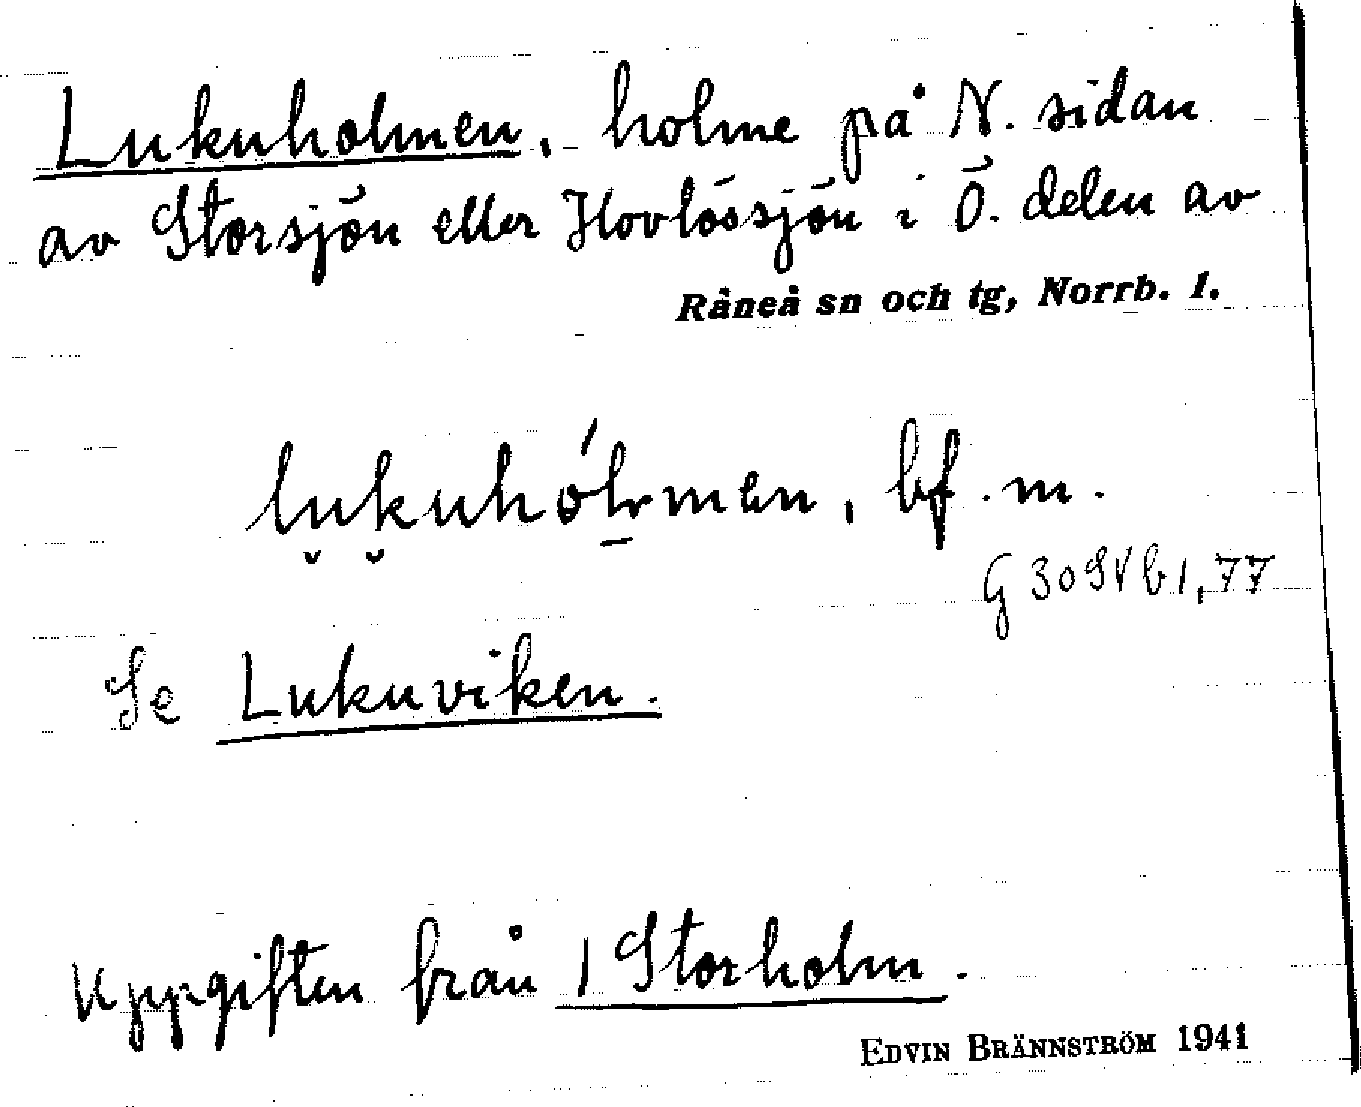 Lukuholmen, holme på N. sidan
av Storsjön eller Hovlössjön i Ö. delen av
Råneå sn och tg, Norrb. l.
lukuhólmen, bf. m.
G 30 SV b 1, 77
Se Lukuviken.
Uppgiften från 1 Storholm.
EDVIN BRÄNNSTRÖM 1941